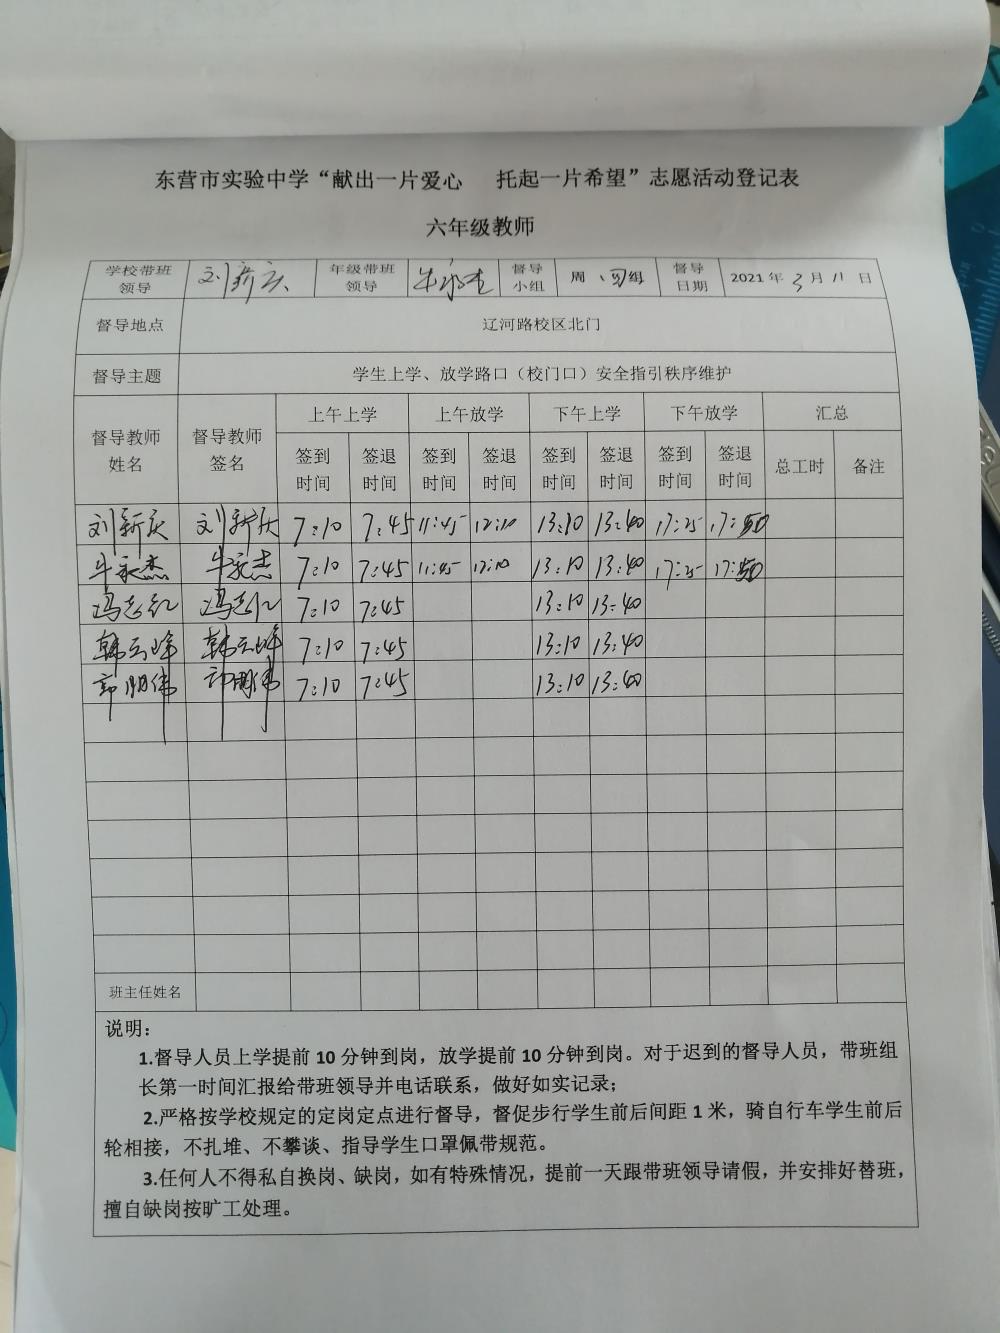 东营市实验中学“献出一片爱心 托起一片希望”志愿活动登记表
六年级教师
学校带班领导 刘新庆 年级带班领导 牛永杰 督导小组 周四组 督导日期 2021年3月11日
督导地点 辽河路校区北门
督导主题 学生上学、放学路口（校门口）安全指引秩序维护
督导教师姓名 督导教师签名 上午上学 上午放学 下午上学 下午放学 汇总
签到时间 签退时间 签到时间 签退时间 签到时间 签退时间 签到时间 签退时间 总工时 备注
刘新庆 刘新庆 7:10 7:45 11:45 12:10 13:10 13:40 17:25 17:50
牛永杰 牛永杰 7:10 7:45 11:45 12:10 13:10 13:40 17:25 17:50
冯志红 冯志红 7:10 7:45 13:10 13:40
韩云峰 韩云峰 7:10 7:45 13:10 13:40
7:10 7:45 13:10 13:40
班主任姓名
说明：
1.督导人员上学提前10分钟到岗，放学提前10分钟到岗。对于迟到的督导人员，带班组
长第一时间汇报给带班领导并电话联系，做好如实记录；
2.严格按学校规定的定岗定点进行督导，督促步行学生前后间距1米，骑自行车学生前后
轮相接，不扎堆、不攀谈、指导学生口罩佩带规范。
3.任何人不得私自换岗、缺岗，如有特殊情况，提前一天跟带班领导请假，并安排好替班，
擅自缺岗按旷工处理。